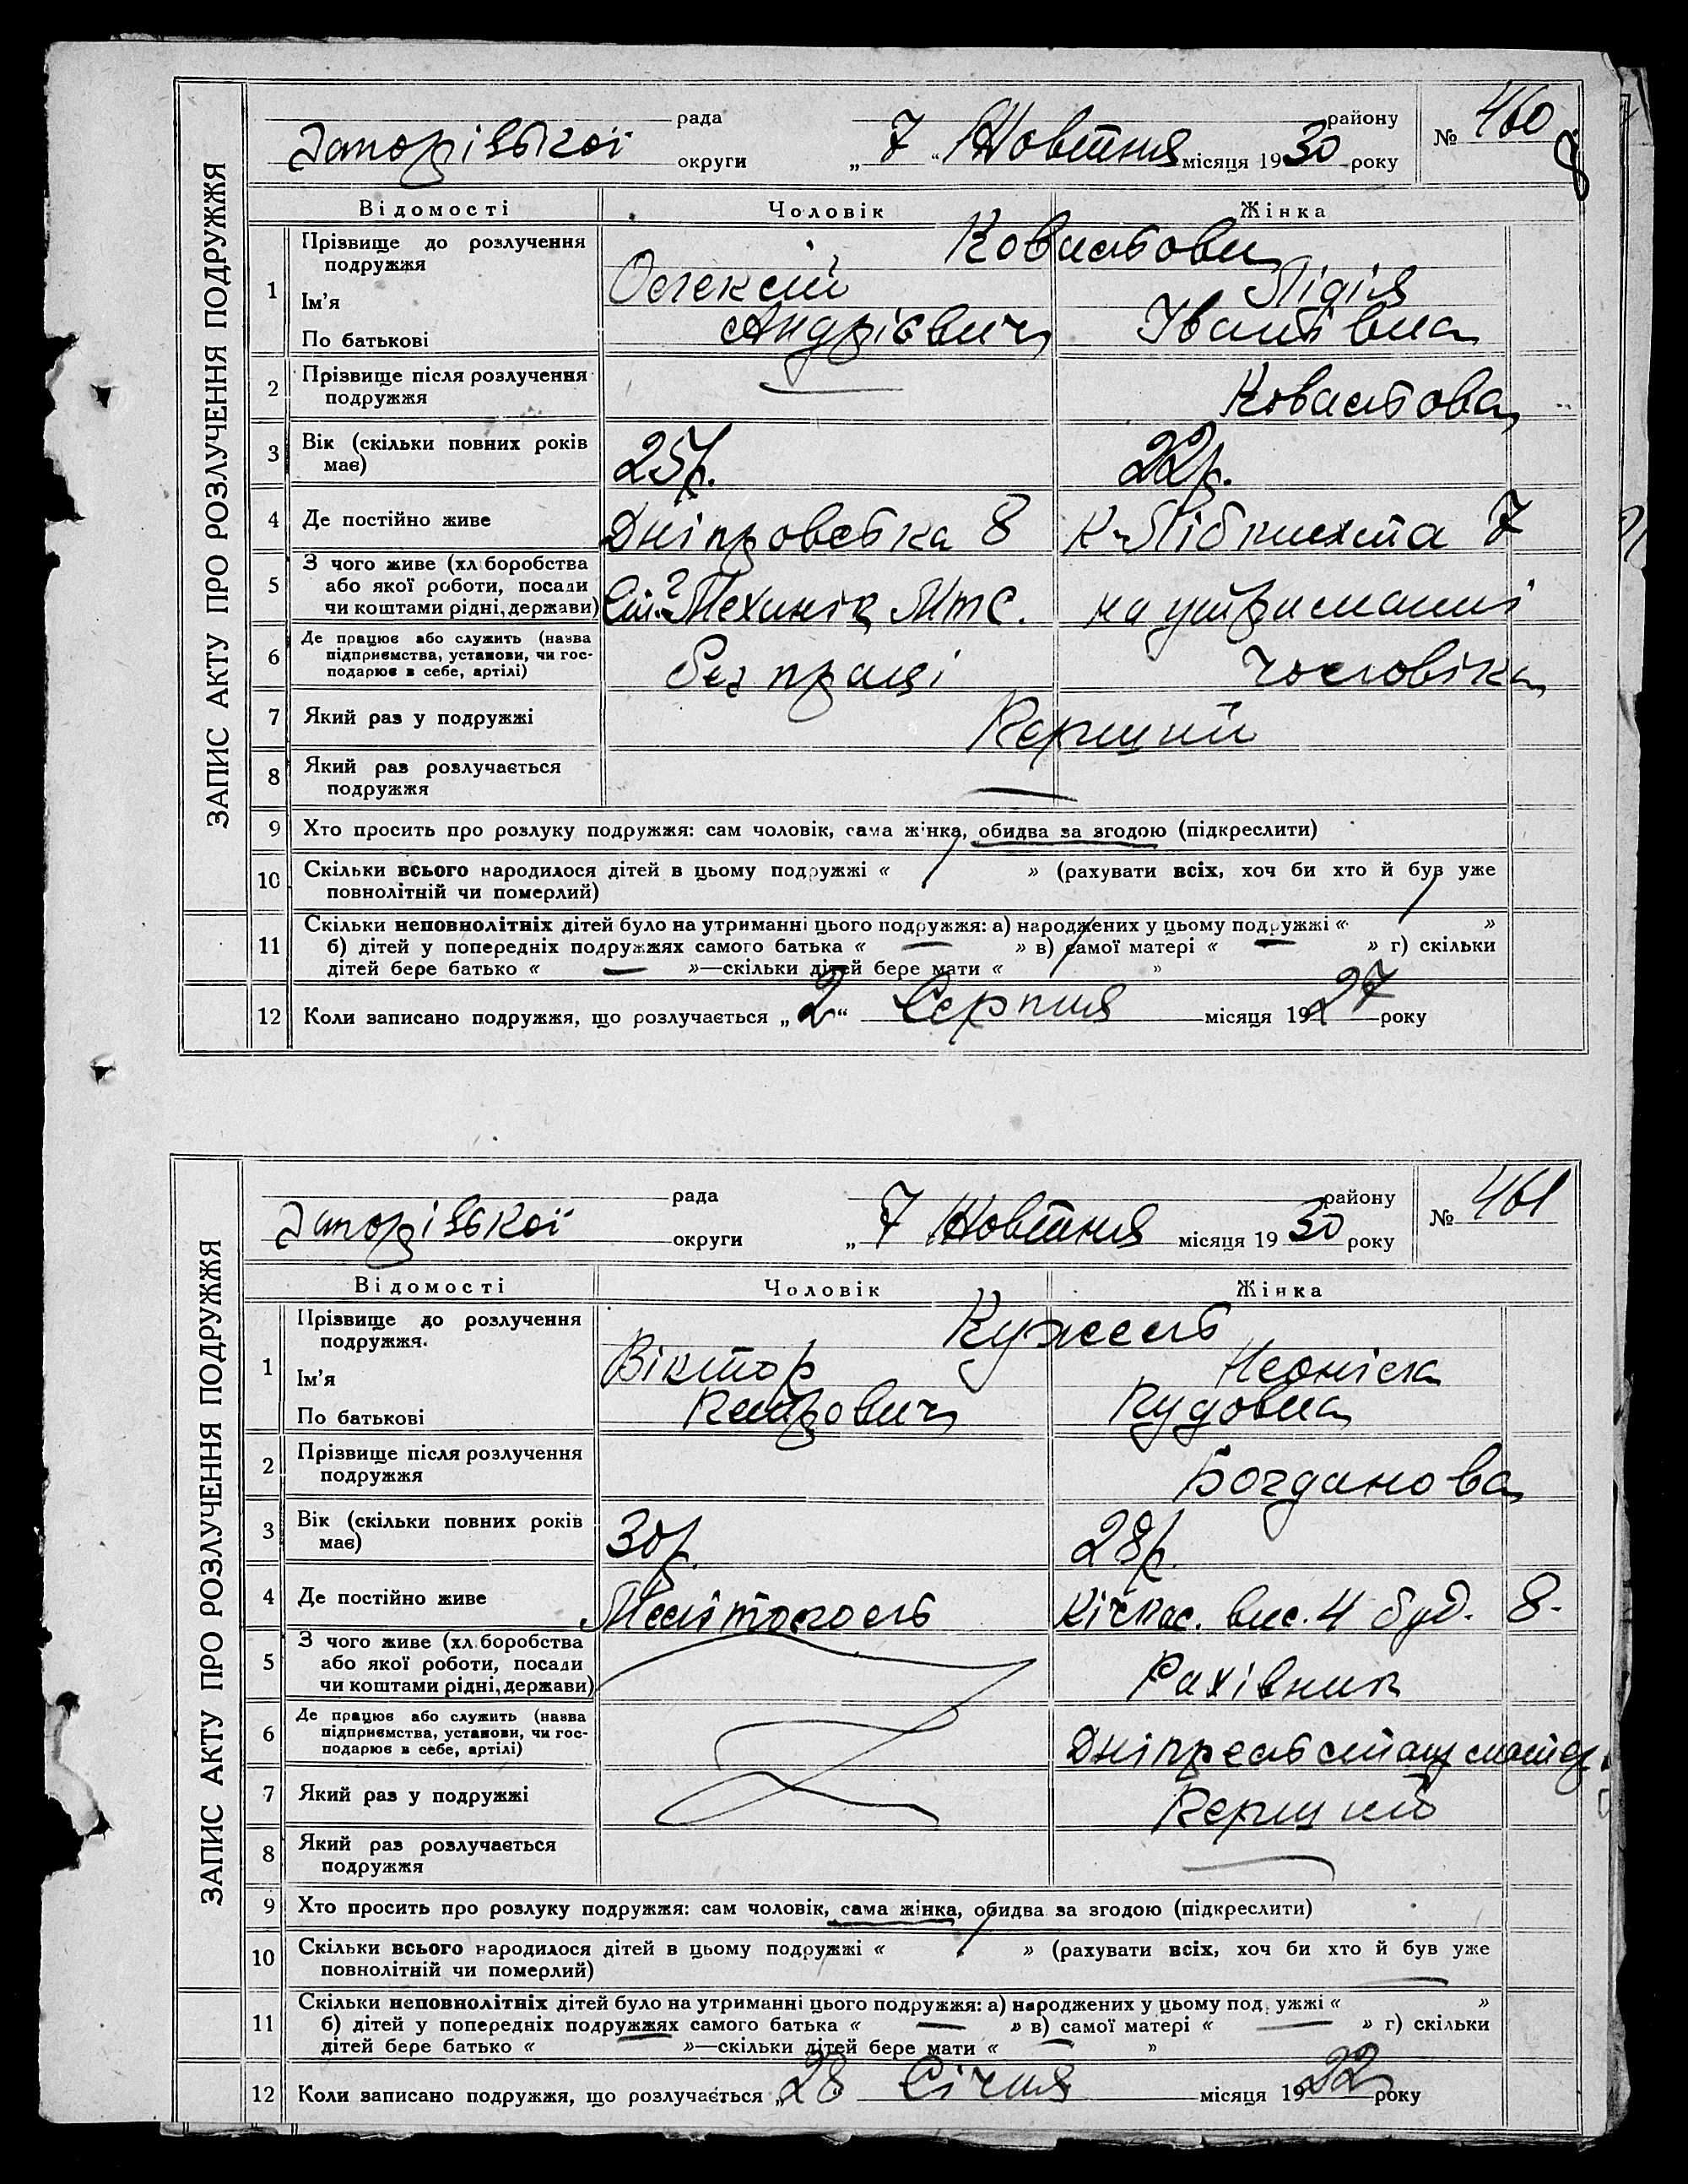 ЗАПИС АКТУ ПРО РОЗЛУЧЕННЯ ПОДРУЖЖЯ
рада району № 460
Запорізької округи „ 7 “ Жовтня місяця 1930 року
Відомості Чоловік Жінка
1 Прізвище до розлучення подружжя
Ім'я Олексій Лідія
По батькові Андрієвич Іванівна
2 Прізвище після розлучення
подружжя
3 Вік (скільки повних років 25р. 22р.
має)
4 Де постійно живе Дніпровська 8 К-Лібкнехта 7
5 З чого живе (хліборобства
або якої роботи, посади Механік МТС. на утриманні
чи коштами рідні, держави)
6 Де працює або служить (назва
підприємства, установи, чи гос- без праці чоловіка
подарює в себе, артілі)
7 Який раз у подружжі Перший
8 Який раз розлучається
подружжя —
9 Хто просить про розлуку подружжя: сам чоловік, сама жінка, обидва за згодою (підкреслити)
10 Скільки всього народилося дітей в цьому подружжі « / » (рахувати всіх, хоч би хто й був уже
повнолітній чи померлий)
11 Скільки неповнолітніх дітей було на утриманні цього подружжя: а) народжених у цьому подружжі « / »
б) дітей у попередніх подружжях самого батька « — » в) самої матері « — » г) скільки
дітей бере батько « — »—скільки дітей бере мати « / »
12 Коли записано подружжя, що розлучається „ 2 “ Серпня місяця 1927 року
ЗАПИС АКТУ ПРО РОЗЛУЧЕННЯ ПОДРУЖЖЯ
рада району № 461
Запорізької округи „ 7 Жовтня місяця 1930 року
Відомості Чоловік Жінка
1 Прізвище до розлучення подружжя Кужель
Ім'я Віктор Неоніла
По батькові Петрович
2 Прізвище після розлучення
подружжя Богданова
3 Вік (скільки повних років 30р. 28р.
має)
4 Де постійно живе Мелітополь Кічкас. вис. 4 буд. 8.
5 З чого живе (хліборобства
або якої роботи, посади Рахівник
чи коштами рідні, держави)
6 Де працює або служить (назва
підприємства, установи, чи гос-
подарює в себе, артілі)
7 Який раз у подружжі Перший
8 Який раз розлучається
подружжя —
9 Хто просить про розлуку подружжя: сам чоловік, сама жінка, обидва за згодою (підкреслити)
10 Скільки всього народилося дітей в цьому подружжі « / » (рахувати всіх, хоч би хто й був уже
повнолітній чи померлий)
11 Скільки неповнолітніх дітей було на утриманні цього подружжя: а) народжених у цьому подружжі « — »
б) дітей у попередніх подружжях самого батька « — » в) самої матері « — » г) скільки
дітей бере батько « — »—скільки дітей бере мати « — »
12 Коли записано подружжя, що розлучається „ 28 Січня місяця 1922 року